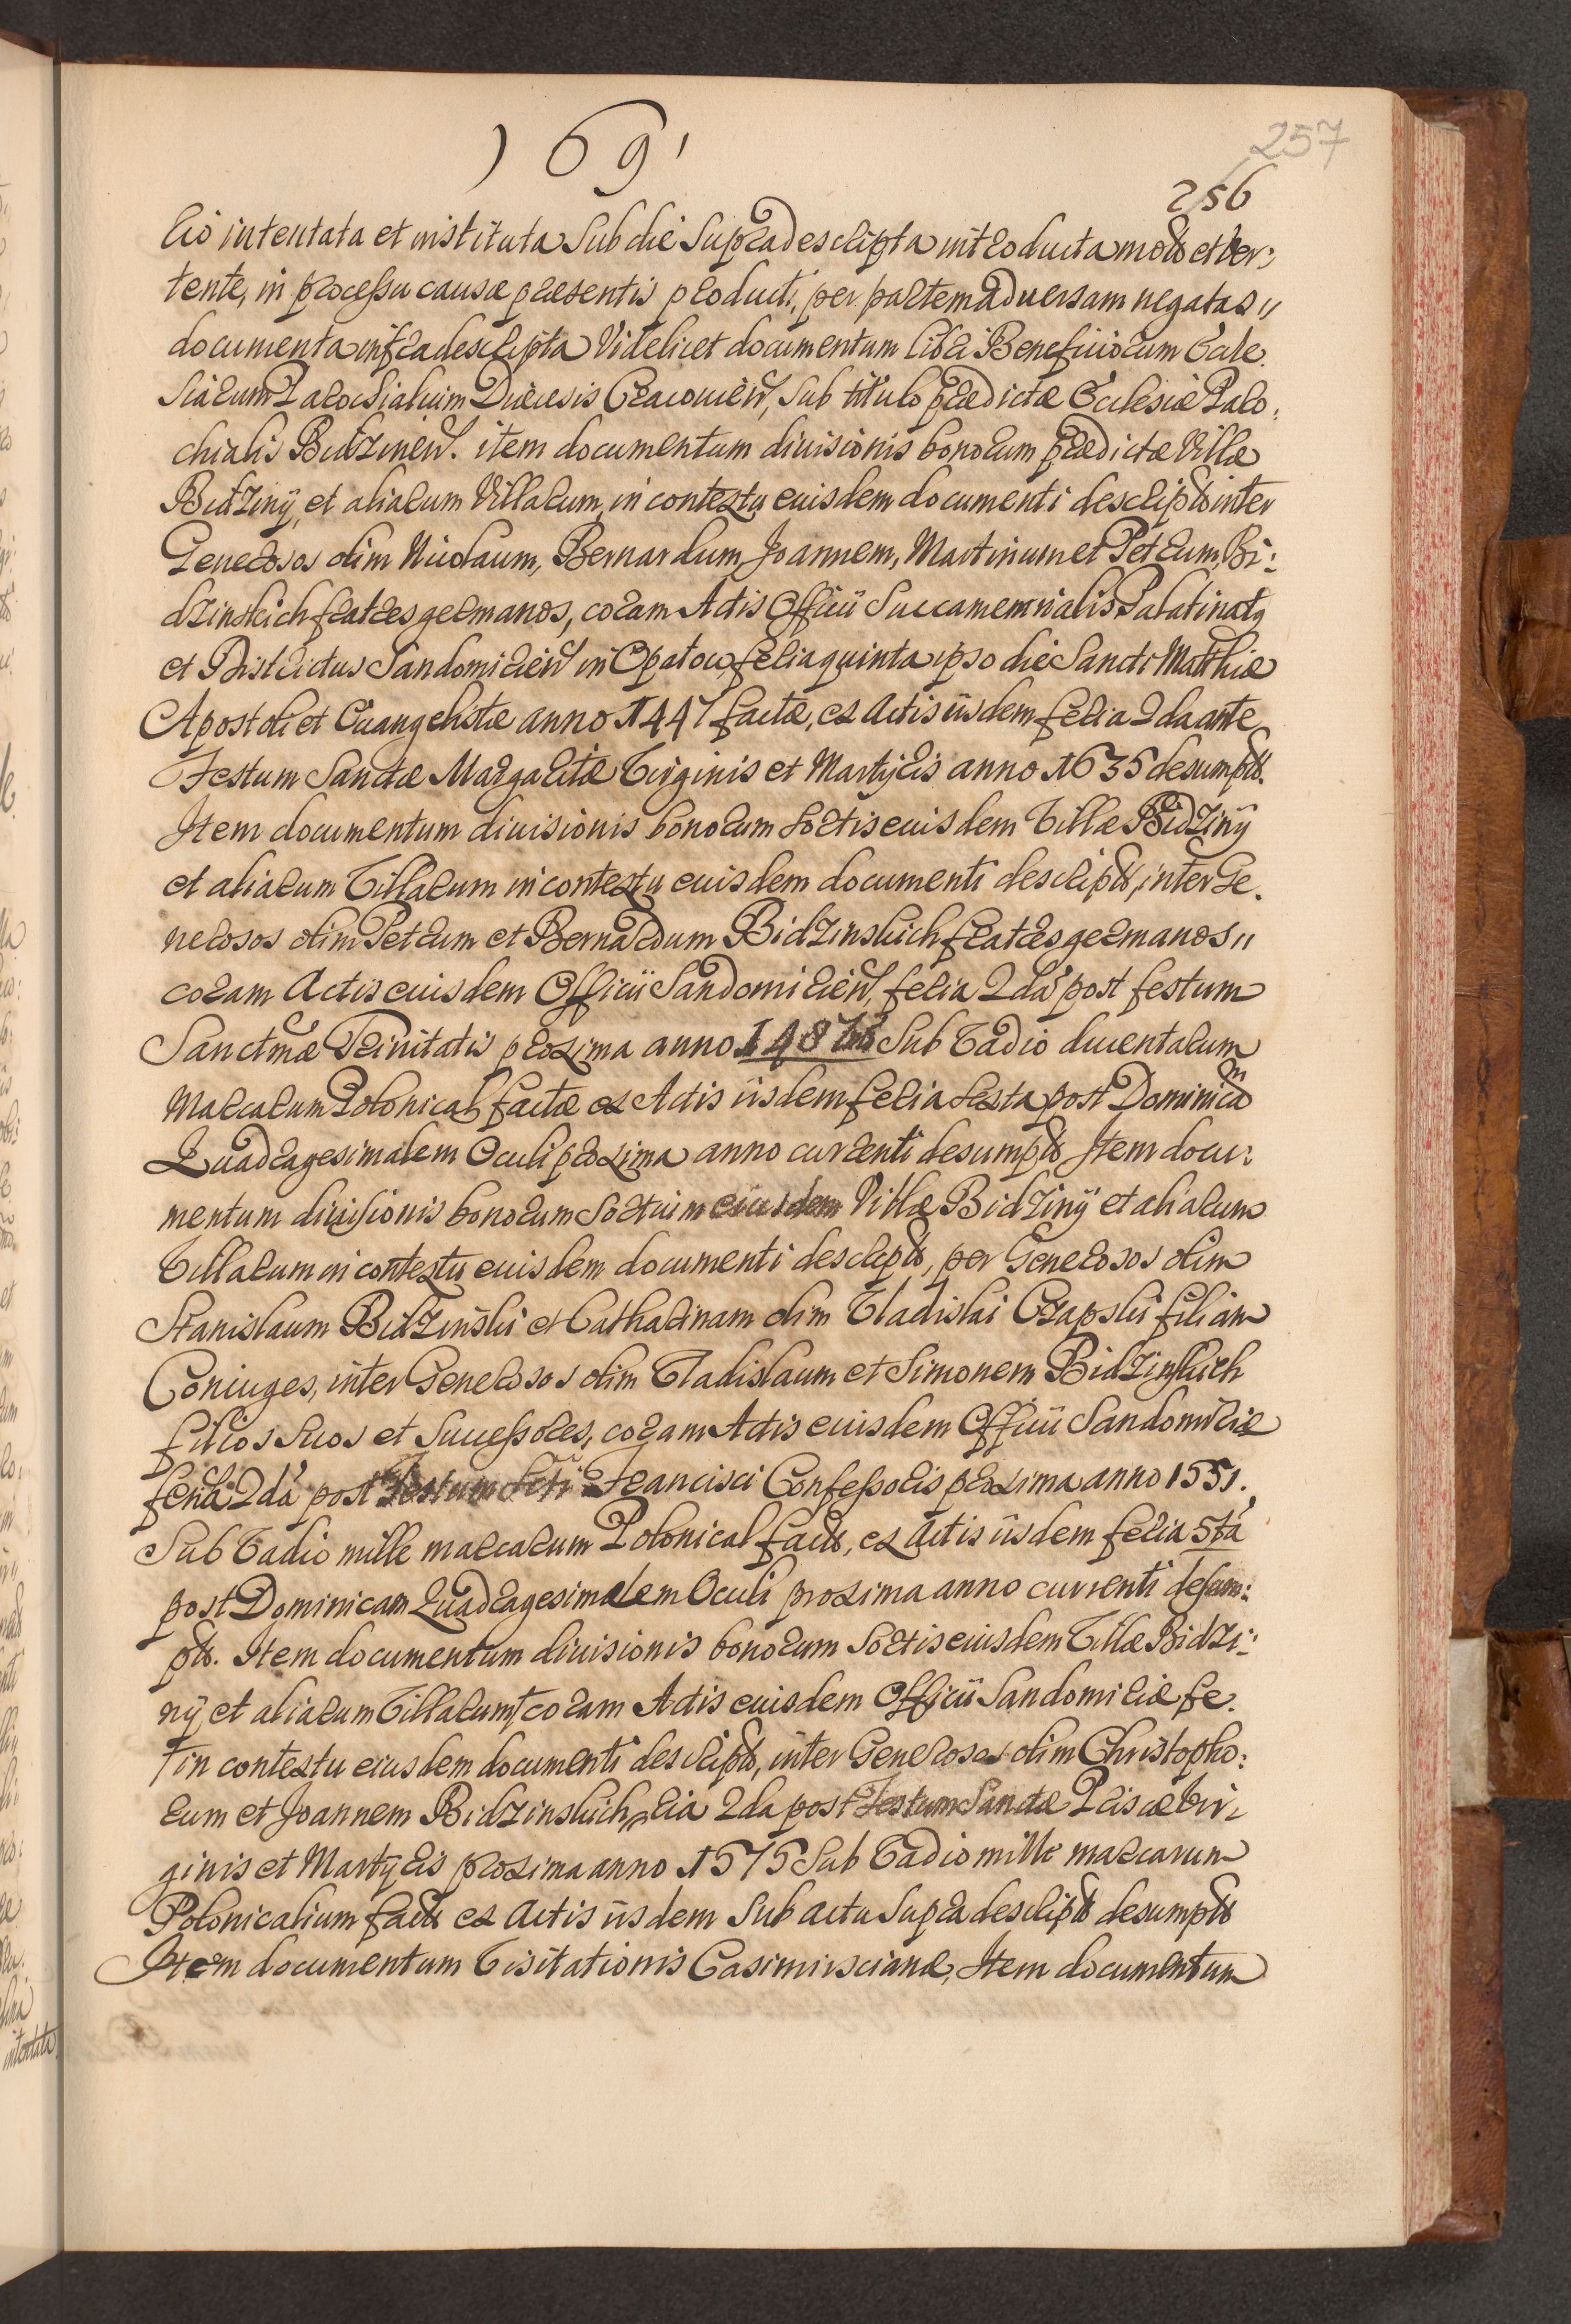 ) 69 '
257
256
rio intentata et instituta Sub die Supradescripta introducta mota et ver:
tente, in processu causæ præsentis producti, per partem adversam negatas "
documenta infradescripta Videlicet documentum libri Beneficiorum Eccle.
siarum Parochialium Diæcesis Cracovien, Sub titulo prædictæ Ecclesiæ Paro.
chialis Bidzinen. item documentum divisionis bonorum prædictæ Villæ
Bidziny, et aliarum Villarum, in contextu eiusdem documenti descripta inter
Generosos olim Nicolaum, Bernardum, Joannem, Martinum et Petrum, Bi:
dzinskich fratres germanos, coram Actis Officii Succamerarialis Palatinatq
et Districtus Sandomirien in Opatow, feria quinta ipso die Sancti Matthiæ
Apostoli et Evangelistæ anno 1447 factæ, ex Actis iisdem feria 2da ante
Festum Sanctæ Margaritæ Virginis et Martyris anno 1635 desumpta.
Item documentum divisionis bonorum Sortis eiusdem Villæ Bidziny
et aliarum Villarum in contextu eiusdem documenti descripta, inter Ge.
nerosos olim Petrum et Bernardum Bidzinskich fratres germanos "
coram Actis eiusdem Officii Sandomirien, feria 2da post festum
Sanctmæ Trinitatis proxima anno Sub Vadio ducentarum
Marcarum Polonical factæ ex Actis iisdem feria Sexta post Dominicam
Quadragesimalem Oculi proxima anno currenti desumpta Item docu:
mentum divisionis bonorum Sortium eiusdem Villæ Bidziny et aliarum
Villarum in contextu eiusdem documenti descripta, per Generosos olim
Stanislaum Bidzinski et Catharinam olim Vladislai Czapski filiam
Coniuges, inter Generosos olim Vladislaum et Simonem Bidzinskich
filios Suos et Successores, coram Actis eiusdem Officii Sandomiriæ
feria 2da post Festum Scti Francisci Confessoris proxima anno 1551.
Sub Vadio mille marcarum Polonical facta, ex Actis iisdem feria 5ta
post Dominicam Quadragesimalem Oculi proxima anno currenti desum:
pta. Item documentum divisionis bonorum Sortis eiusdem Villæ Bidzi:
ny, et aliarum Villarum, † coram Actis eiusdem Officii Sandomiriæ fe.
† in contextu eiusdem documenti descripta, inter Generosos olim Christopho:
rum et Joannem Bidzinskich, ria 2da post Festum Sanctæ Priscæ Vir:
ginis et Martyris proxima anno 1575 Sub Vadio mille marcarum
Polonicalium facta ex Actis iisdem Sub actu Supradescripto desumpta
Item documentum Visitationis Casimirscianæ, Item documentum
intentata